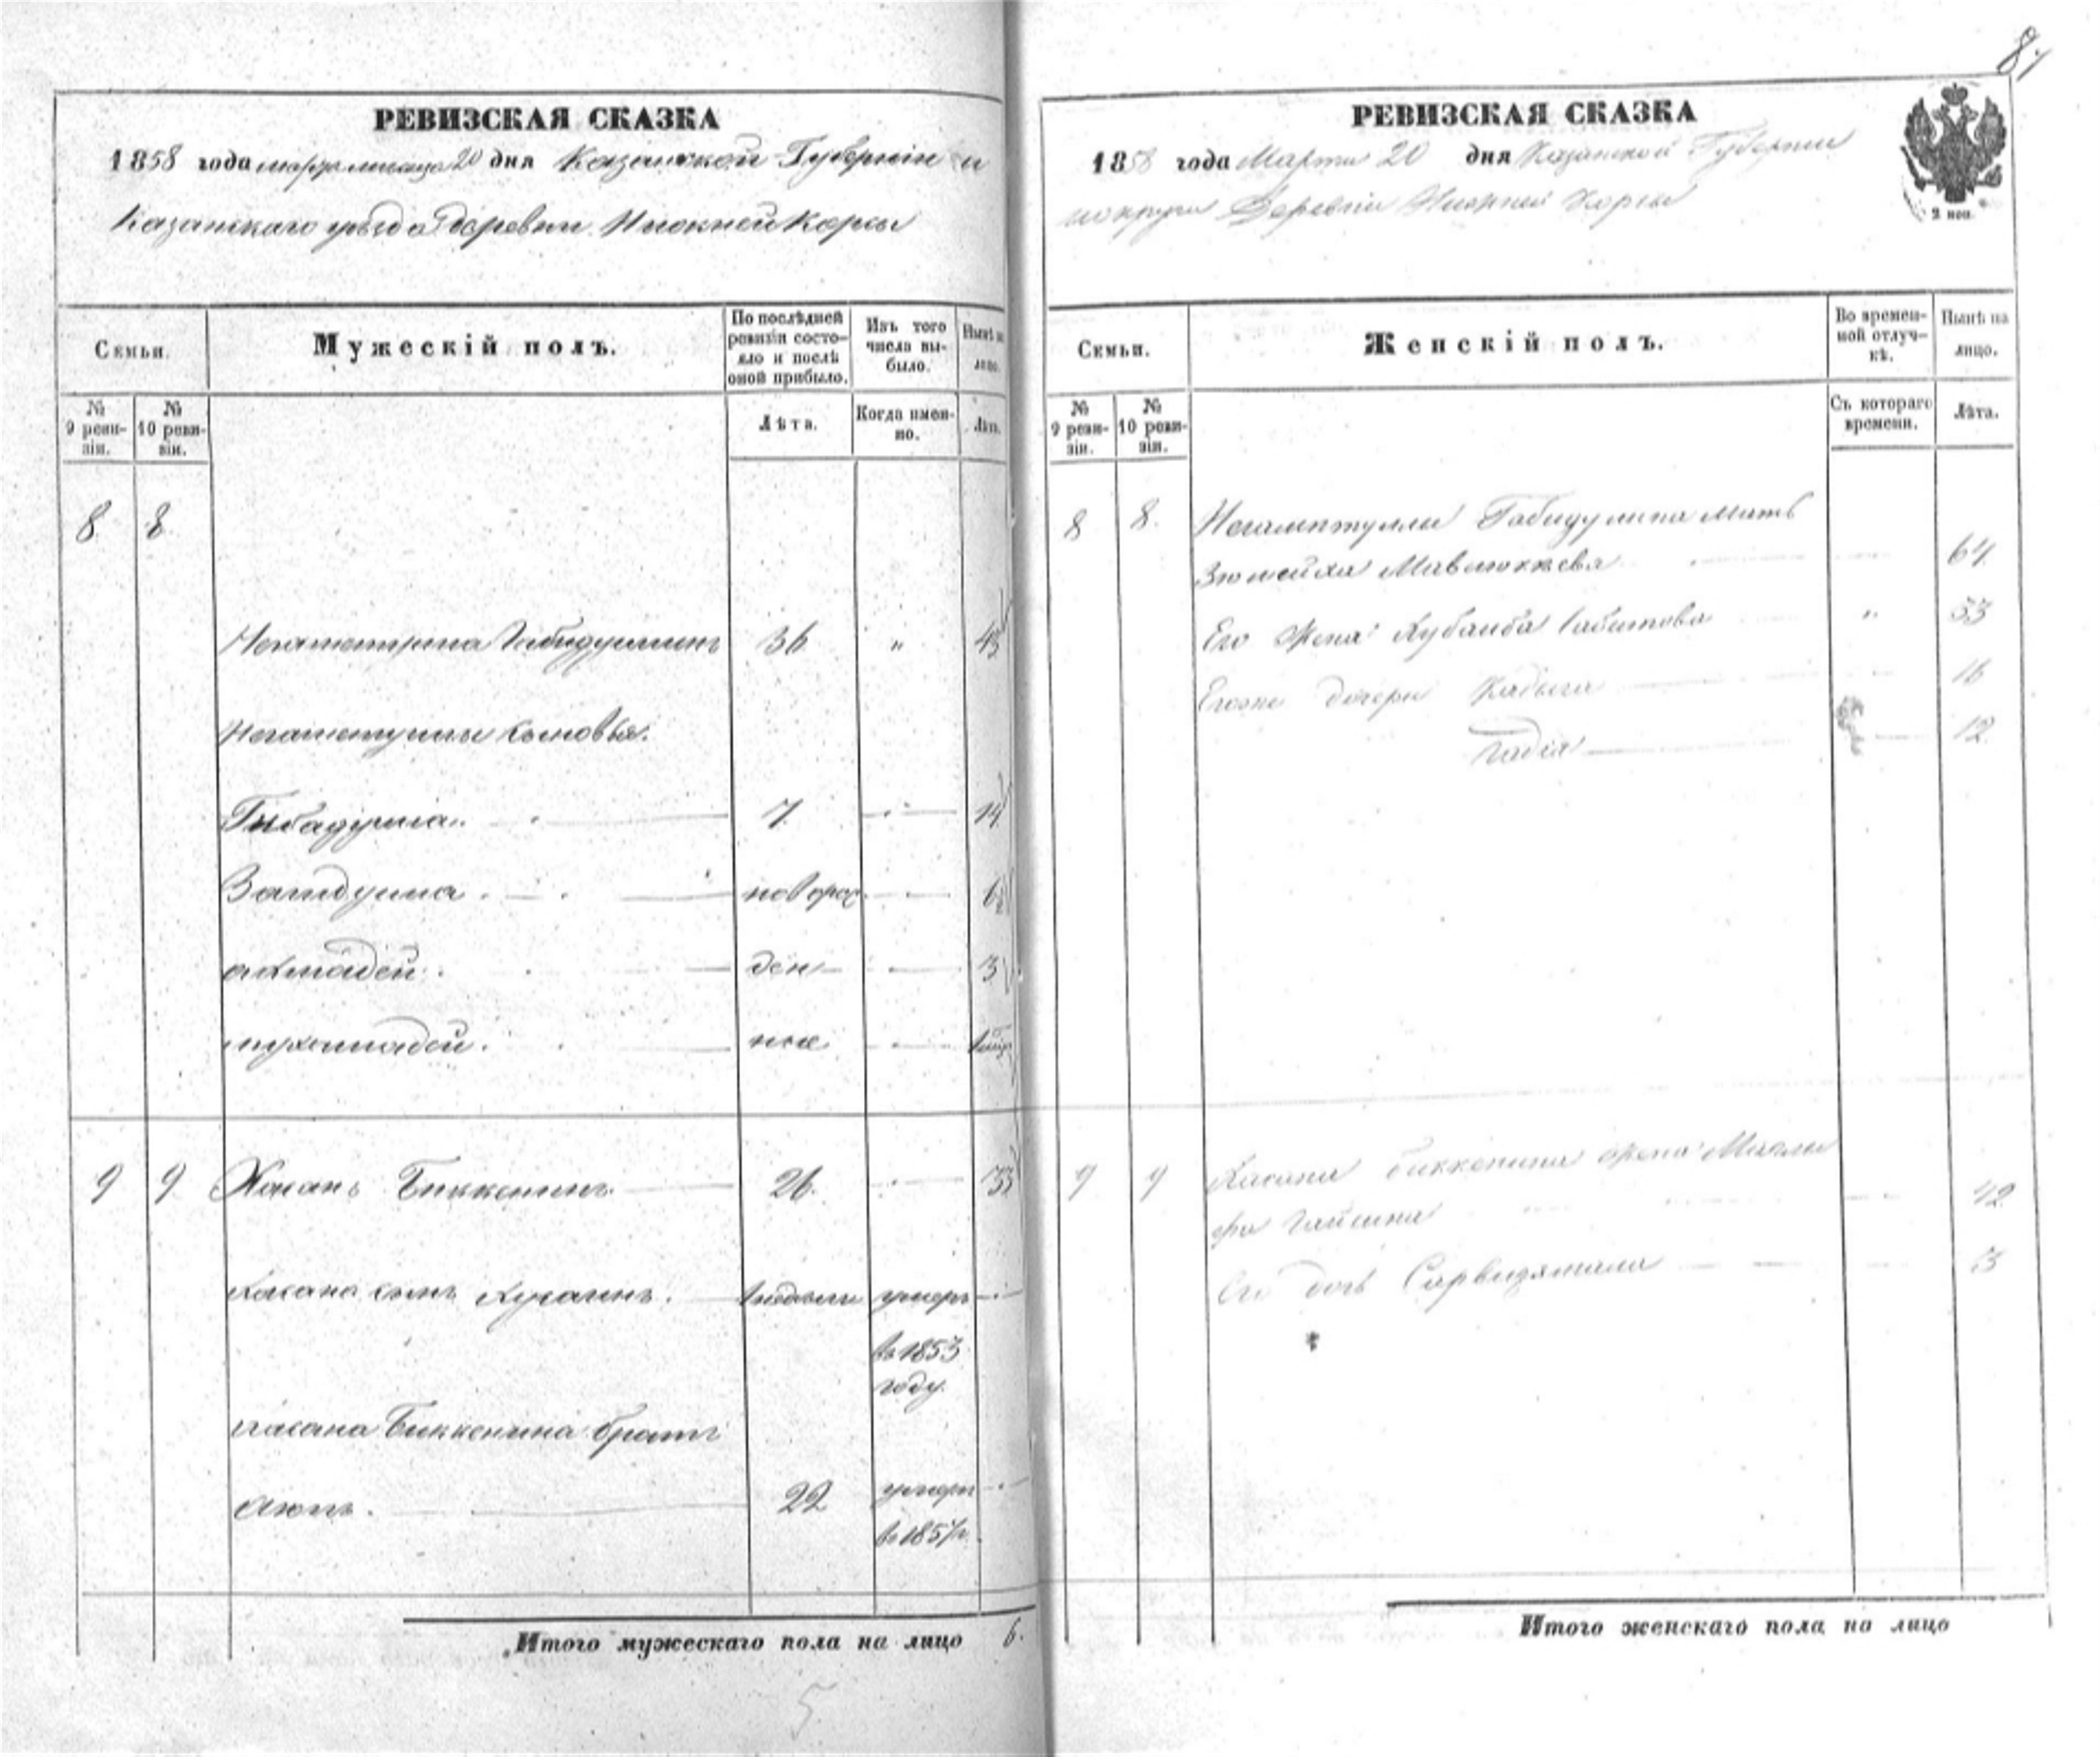 РЕВИЗСКАЯ СКАЗКА
1858 года марта месяца 20 дня Казанской Губернiи и
Казанскаго уезда деревни Нижней Корсы
Семьи.
Мужескiй полъ.
По послѣдней ревизiи состояло и послѣ оной прибыло.
Изъ того числа выбыло.
Нынѣ на лицо.
№ 9 ревизiи.
№ 10 ревизiи.
Лѣта.
Когда именно.
Лѣта.
8 8
Негаметулла Габидуллинъ 36 " 43
Негаметуллы сыновья.
Гибадулла 7. 14
Заидулла новорож 6½
ахмадей ден 3
мухамадей ные
9 9 Хасанъ Биккенинъ 26. 33
Хасана сынъ Хусаинъ. умеръ
въ 1853
году.
Хасана Биккенина братъ
Аюпъ. 22 умеръ
въ 1857 г.
Итого мужескаго пола на лицо 6.
5
РЕВИЗСКАЯ СКАЗКА
1858 года Марта 20 дня Казанской Губернiи
и округи Деревни Нижней Корсы
2 коп.
Семьи.
Женскiй полъ.
Во временной отлучкѣ.
Нынѣ на лицо.
№ 9 ревизiи.
№ 10 ревизiи.
Съ котораго времени.
Лѣта.
8 8. Негаметуллы Габидулина мать
Зюлейха Мавлюкаева
Его жена Хубанба Сабитова " 33
Его же дочери Хадыча 16
Гадiя 12
9 9 Хасана биккенина жена
Гайсина 42
Его дочь Сарвизямала 3
Итого женскаго пола на лицо